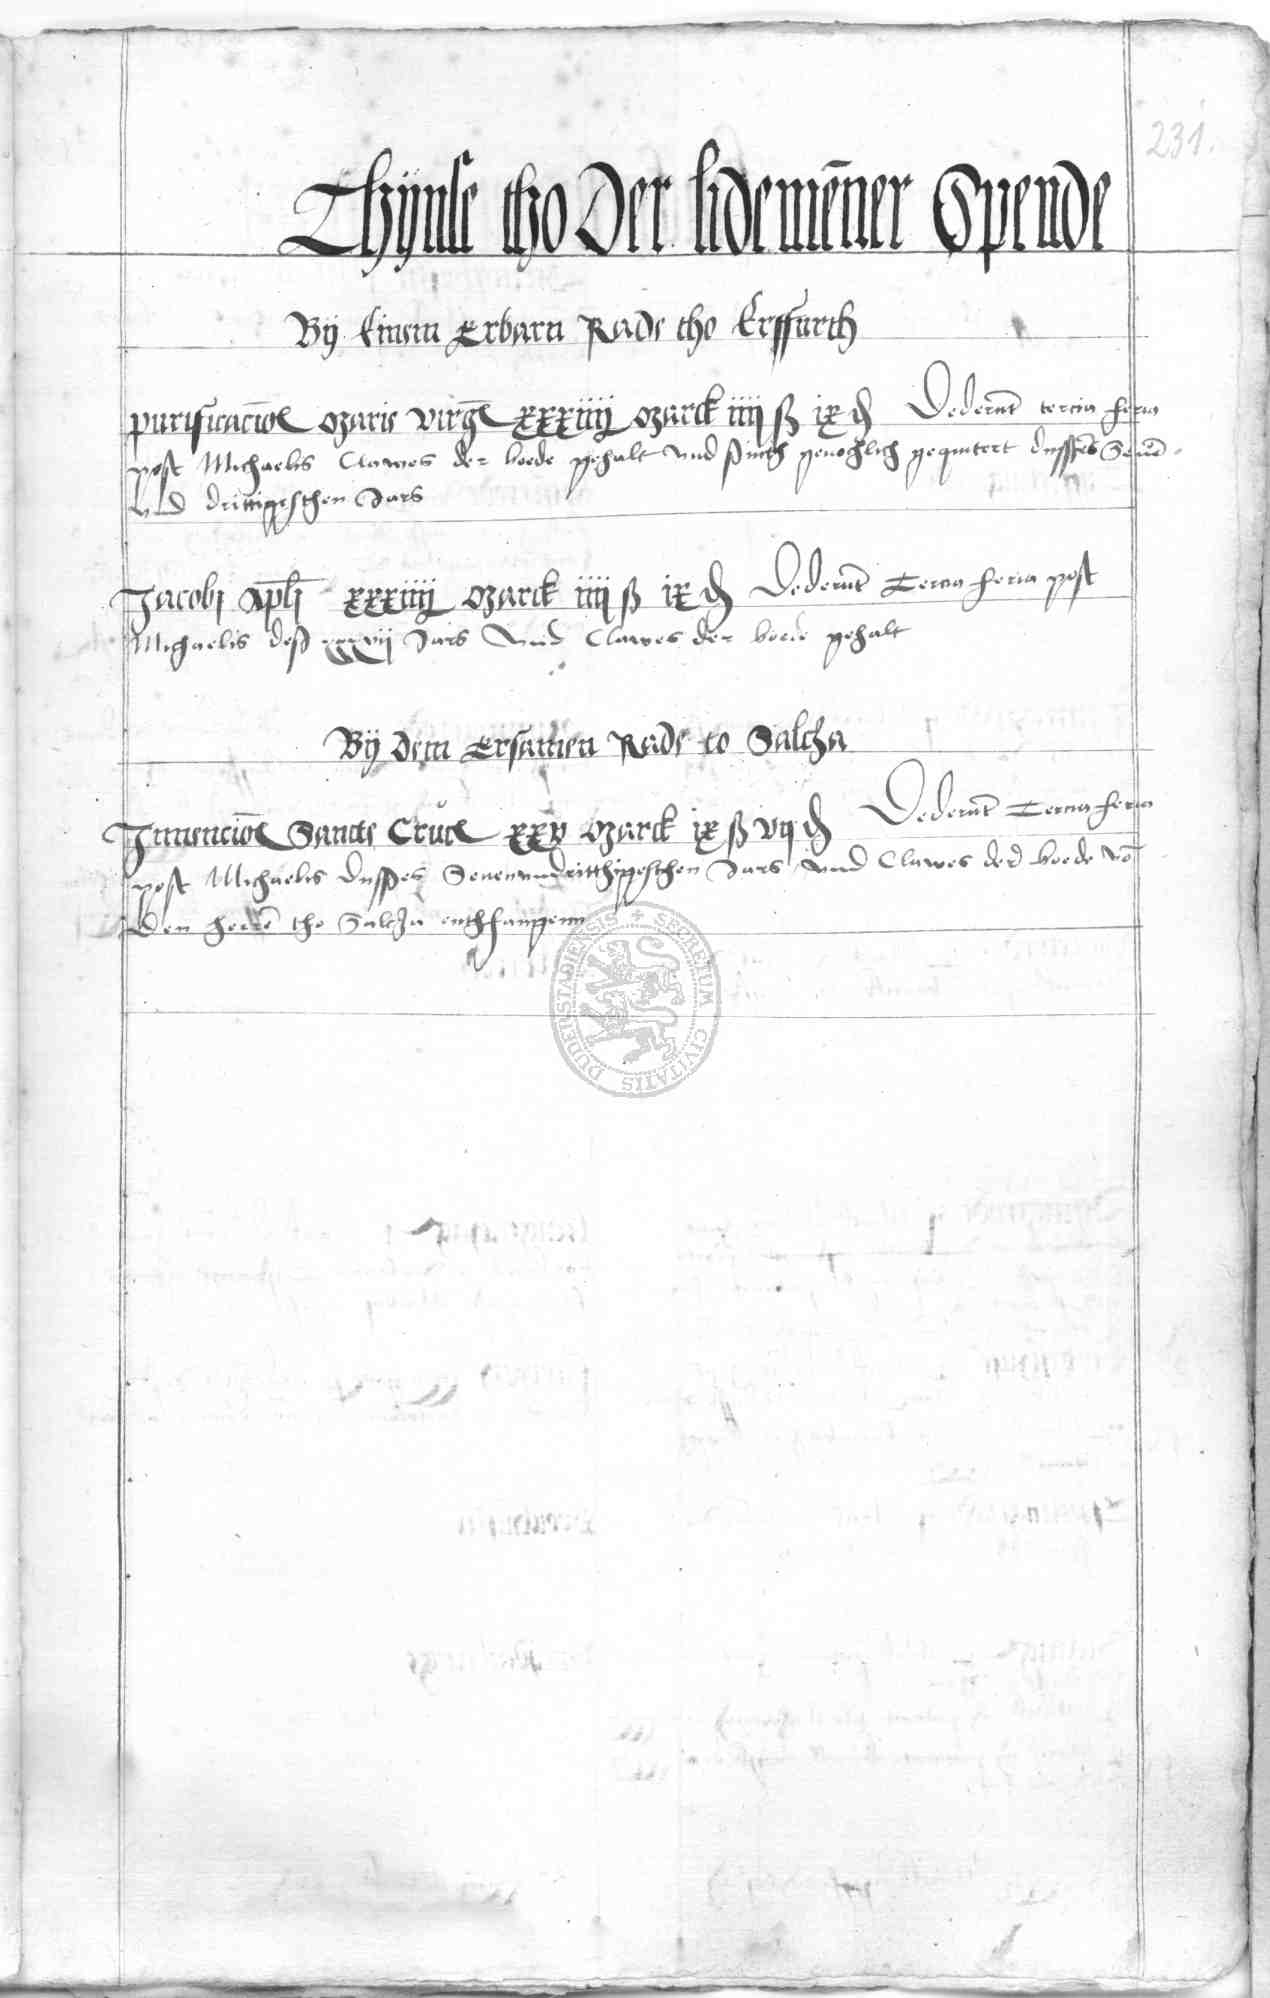 231.
Thÿnse tho Der lidemēner Spende
Bÿ Einem Erbarn Rade tho Erffurth
purificaciōe Marie virgīs xxxiiij Marck iiij ß ix ₰ Dederūt tercia feria
post Michaelis Clawes der boede gehalt und sinth genochlich gequitert dusses Seuē
und drittigesthen Jars
Jacobj apl̄i xxxiiij Marck iiij ß ix ₰ Dederūt Tercia feria post
Michaelis deß xxxvij Jars und Clawes der boede gehalt
Bÿ Dem Ersamen Rade to Saltza
Inuenciōe Sancte Crucis xxv Marck ix ß vij ₰ Dederūt Tercia feria
post Michaelis dusses Seuenundritthigesthen Jars und Clawes der boede vō
den herrē tho Saltza enthfangenn
SECRETUM CIVITATIS DUDERSTADIENSIS